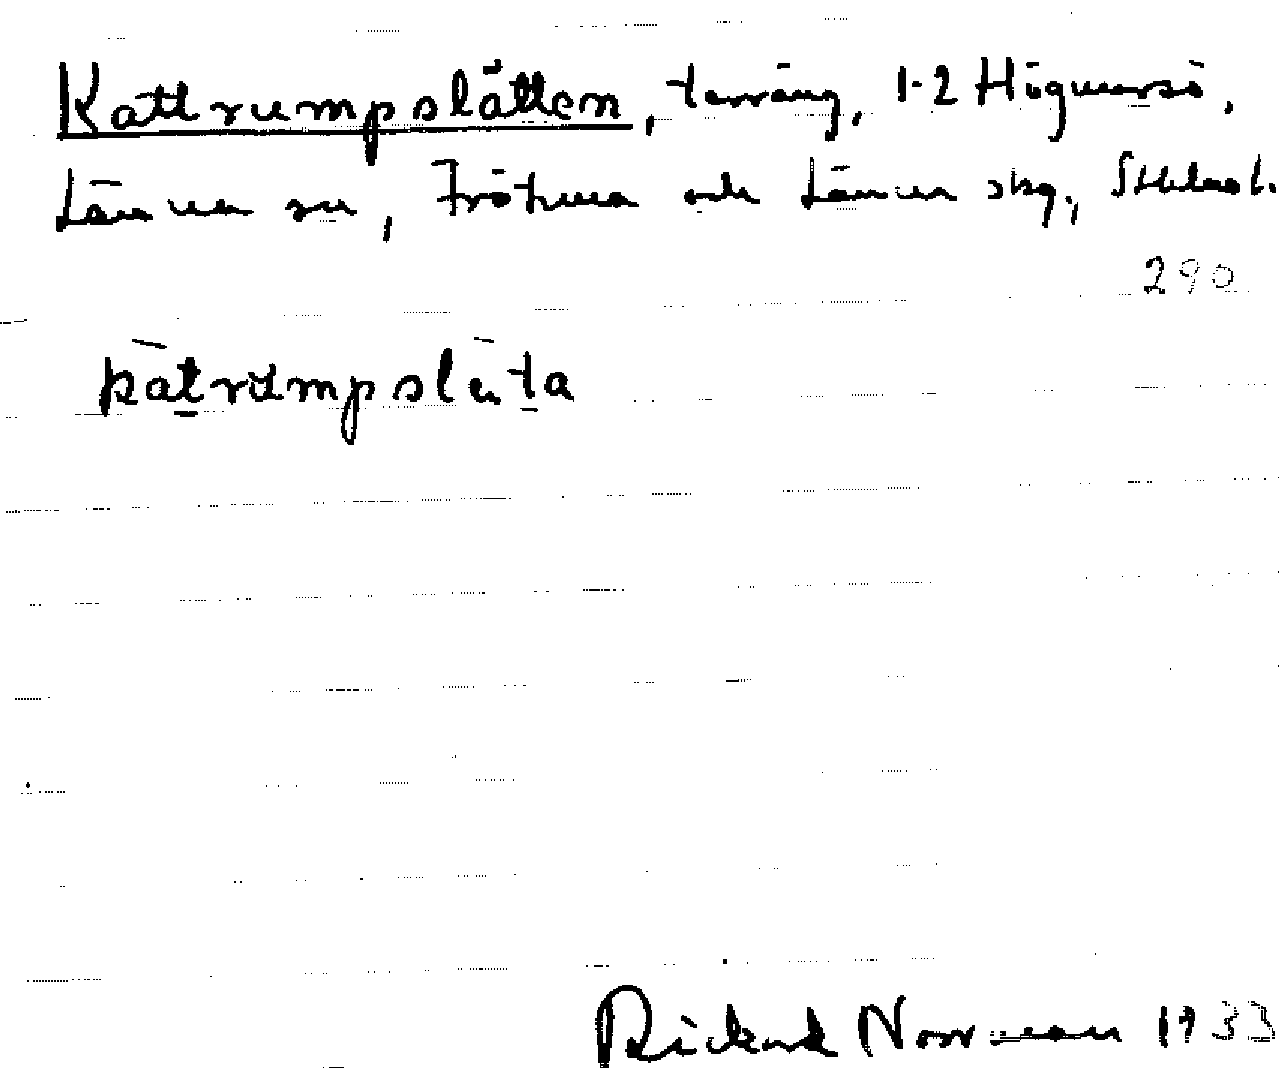 Kattrumpslätten, terräng, 1-2 Högmarsö,
Länna sn, Frötuna och Länna skg, Sthlms l.
290
katrumpsleta
Rickard Norrman 1933